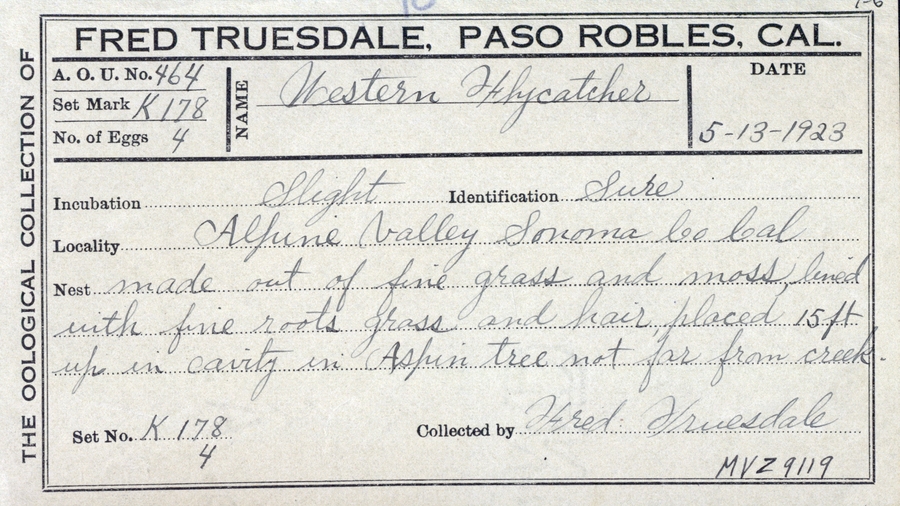 FRED TRUESDALE, PASO ROBLES, CAL.
THE OOLOGICAL COLLECTION OF
A. O. U. No. 464
Set Mark K 178
No. of Eggs 4
NAME Western Flycatcher
DATE
5-13-1923
Incubation Slight Identification Sure
Locality Alpine Valley Sonoma Co Cal
Nest made out of fine grass and moss, lined
with fine roots grass and hair, placed 15 ft
up in cavity in Aspin tree not far from creek.
Set No. K 178
4
Collected by Fred Truesdale
MVZ 9119